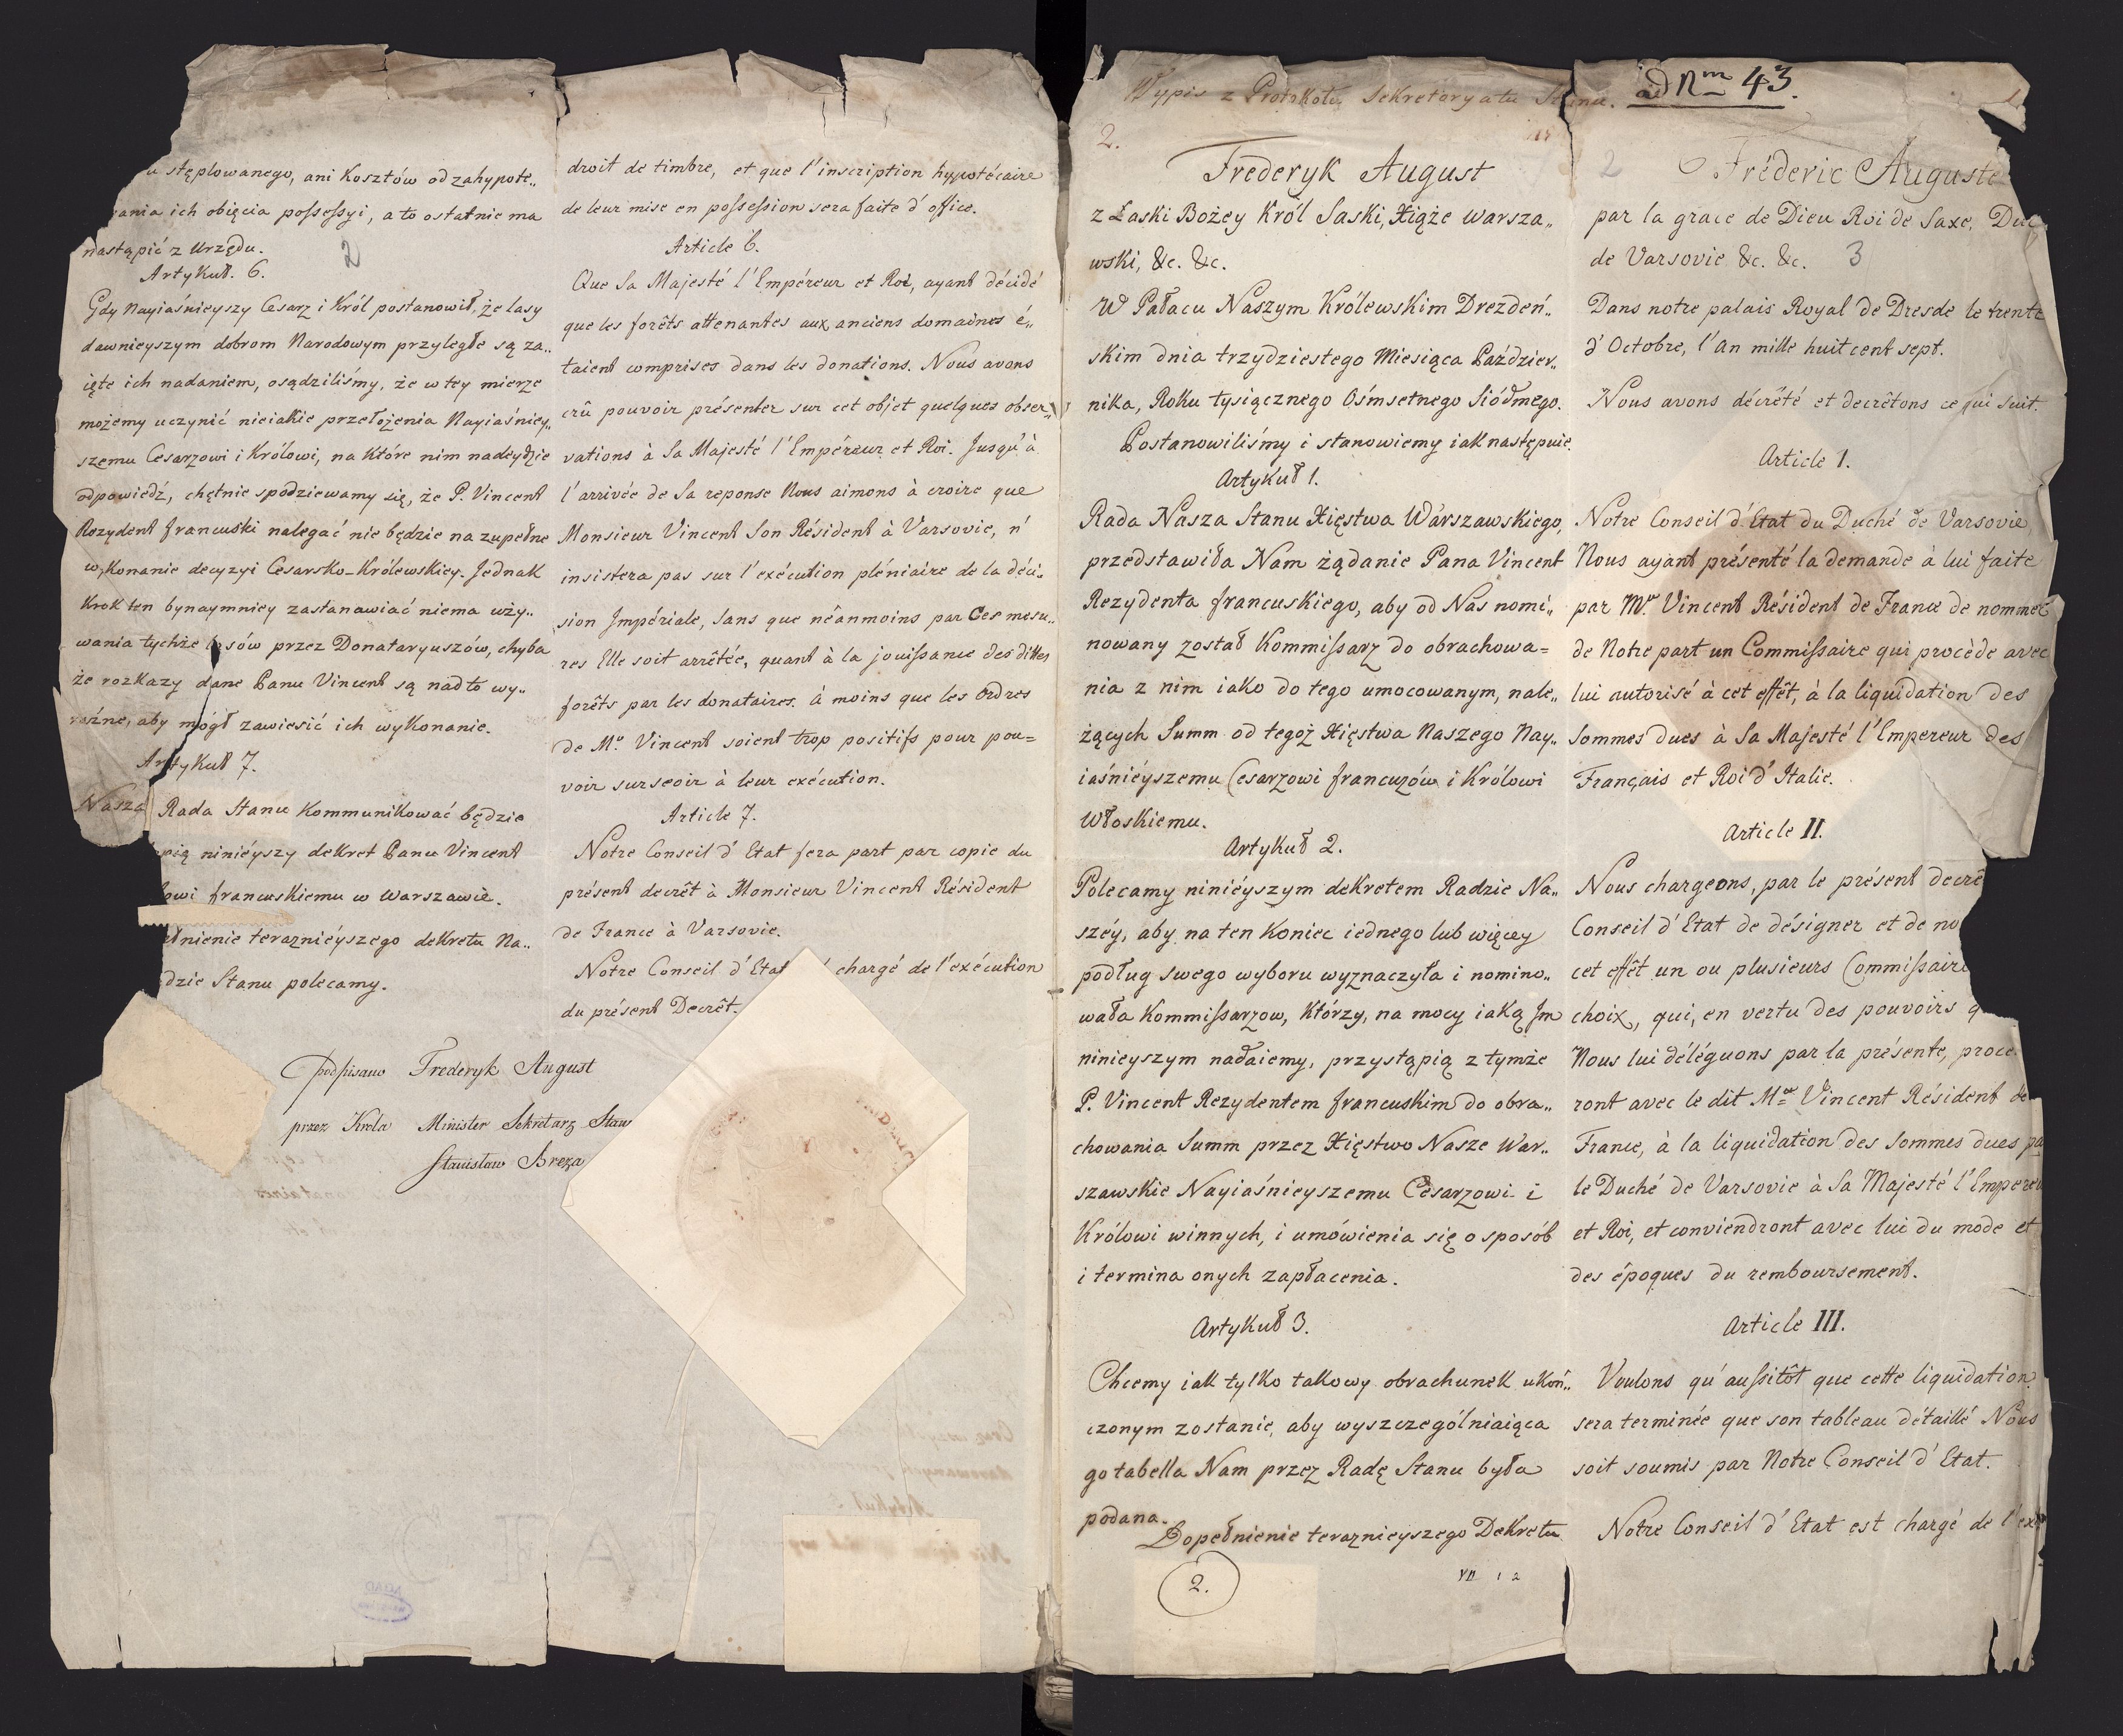 stęplowanego, ani Kosztów od zahypote„
ich obięcia possessyi, a to ostatnie ma
nastąpić z Urzędu.
2
Artykuł. 6.
Gdy Nayiaśnieyszy Cesarz i Król postanowił, że lasy
dawnieyszym dobrom Narodowym przyległe są za„
ięte ich nadaniem, osądziliśmy, że w tey mierze
możemy uczynić nieiakie przełożenia Nayiaśniey„
szemu Cesarzowi i Królowi, na które nim nadeydzie
odpowiedź, chętnie spodziewamy się, że P. Vincent
Rezydent francuski nalegać nie będzie na zupełne
wykonanie decyzyi Cesarsko-Królewskiey. Jednak
Krok ten bynaymniey zastanawiać niema uży„
wania tychże lasów przez Donataryuszów, chyba
że rozkazy dane Panu Vincent są nadto wy„
raźne, aby mógł zawiesić ich wykonanie.
Artykuł 7.
Nasza Rada Stanu Kommunikować będzie
pią ninieyszy dekret Panu Vincent
owi francuskiemu w Warszawie.
łnienie teraznieyszego dekretu Na„
dzie Stanu polecamy.
podpisano Frederyk August
przez Krola Minister Sekretarz Stanu
Stanisław Breza
droit de timbre, et que l'inscription hypotécaire
de leur mise en possession sera faite d'office.
Article 6.
Que Sa Majesté l'Empéreur et Roi, ayant décidé
que les forêts attenantes aux anciens domaines é„
taient comprises dans les donations. Nous avons
crû pouvoir présenter sur cet objet quelques obser„
vations à Sa Majesté l'Empéreur et Roi. Jusqu'à
l'arrivée de Sa reponse Nous aimons à croire que
Monsieur Vincent Son Résident à Varsovie, n'
insistera pas sur l'exécution pléniaire de la déci„
sion Impériale, sans que néanmoins par Ces mesu„
res Elle soit arrêtée, quant à la jouissance des dittes
forêts par les donataires. à moins que les Ordres
de Mr. Vincent soient trop positifs pour pou=
voir surseoir à leur exécution.
Article 7.
Notre Conseil d'Etat fera part par copie du
présent decrêt à Monsieur Vincent Résident
de France à Varsovie.
Notre Conseil d'Etat chargé de l'exécution
du présent Decrêt.
Wypis z Protokołu Sekretaryatu Stanu.
ad Nm 43.
2.
Frederyk August
z Łaski Bożey Król Saski, Xiąże Warsza„
wski, &c. &c.
W Pałacu Naszym Królewskim Drezdeń„
skim dnia trzydziestego Miesiąca Paździer„
nika, Roku tysiącznego Ośmsetnego Siódmego.
Postanowiliśmy i stanowiemy iak następuie.
Artykuł 1.
Rada Nasza Stanu Xięstwa Warszawskiego,
przedstawiła Nam żądanie Pana Vincent
Rezydenta francuskiego, aby od Nas nomi„
nowany został Kommissarz do obrachowa=
nia z nim iako do tego umocowanym, nale„
żących Summ od tegoż Xięstwa Naszego Nay„
iaśnieyszemu Cesarzowi francuzów i Królowi
Włoskiemu.
Artykuł 2.
Polecamy ninieyszym dekretem Radzie Na„
széy, aby na ten Koniec iednego lub więcey
podług swego wyboru wyznaczyła i nomino„
wała Kommissarzow, Którzy, na mocy iaką Im
ninieyszym nadaiemy, przystąpią z tymże
P. Vincent Rezydentem francuskim do obra„
chowania Summ przez Xięstwo Nasze War„
szawskie Nayiaśnieyszemu Cesarzowi i
Królowi winnych, i umówienia się o sposób
i termina onych zapłacenia.
Artykuł 3.
Chcemy iak tylko takowy obrachunek ukoń„
czonym zostanie, aby wyszczególniaiąca
go tabella Nam przez Radę Stanu była
podana.
Dopełnienie teraznieyszego Dekretu
2.
2
Fréderic Auguste
par la grace de Dieu Roi de Saxe, Duc
de Varsovie &c. &c. 3
Dans notre palais Royal de Dresde le trente
d'Octobre, l'an mille huit cent sept.
Nous avons décrêté et decrêtons ce qui suit.
Article I.
Notre Conseil d'Etat du Duché de Varsovie
Nous ayant présenté la demande à lui faite
par Mr. Vincent Résident de France de nommer
de Notre part un Commissaire qui procède avec
lui autorisé à cet effêt, à la liquidation des
Sommes dues à Sa Majesté l'Empereur des
Français et Roi d'Italie.
Article II.
Nous chargeons, par le présent decrê
Conseil d'Etat de désigner et de no
cet effêt un ou plusieurs Commissaire
choix, qui, en vertu des pouvoirs q
Nous lui déléguons par la présente, procé
ront avec le dit Mr. Vincent Résident de
France, à la liquidation des Sommes dues pa
le Duché de Varsovie à Sa Majesté l'Empereu
et Roi, et conviendront avec lui du mode et
des époques du remboursement.
Article III.
Voulons qu'aussitôt que cette liquidation
sera terminée que son tableau détaillé Nous
soit soumis par Notre Conseil d'Etat.
Notre Conseil d'Etat est chargé de l'exé